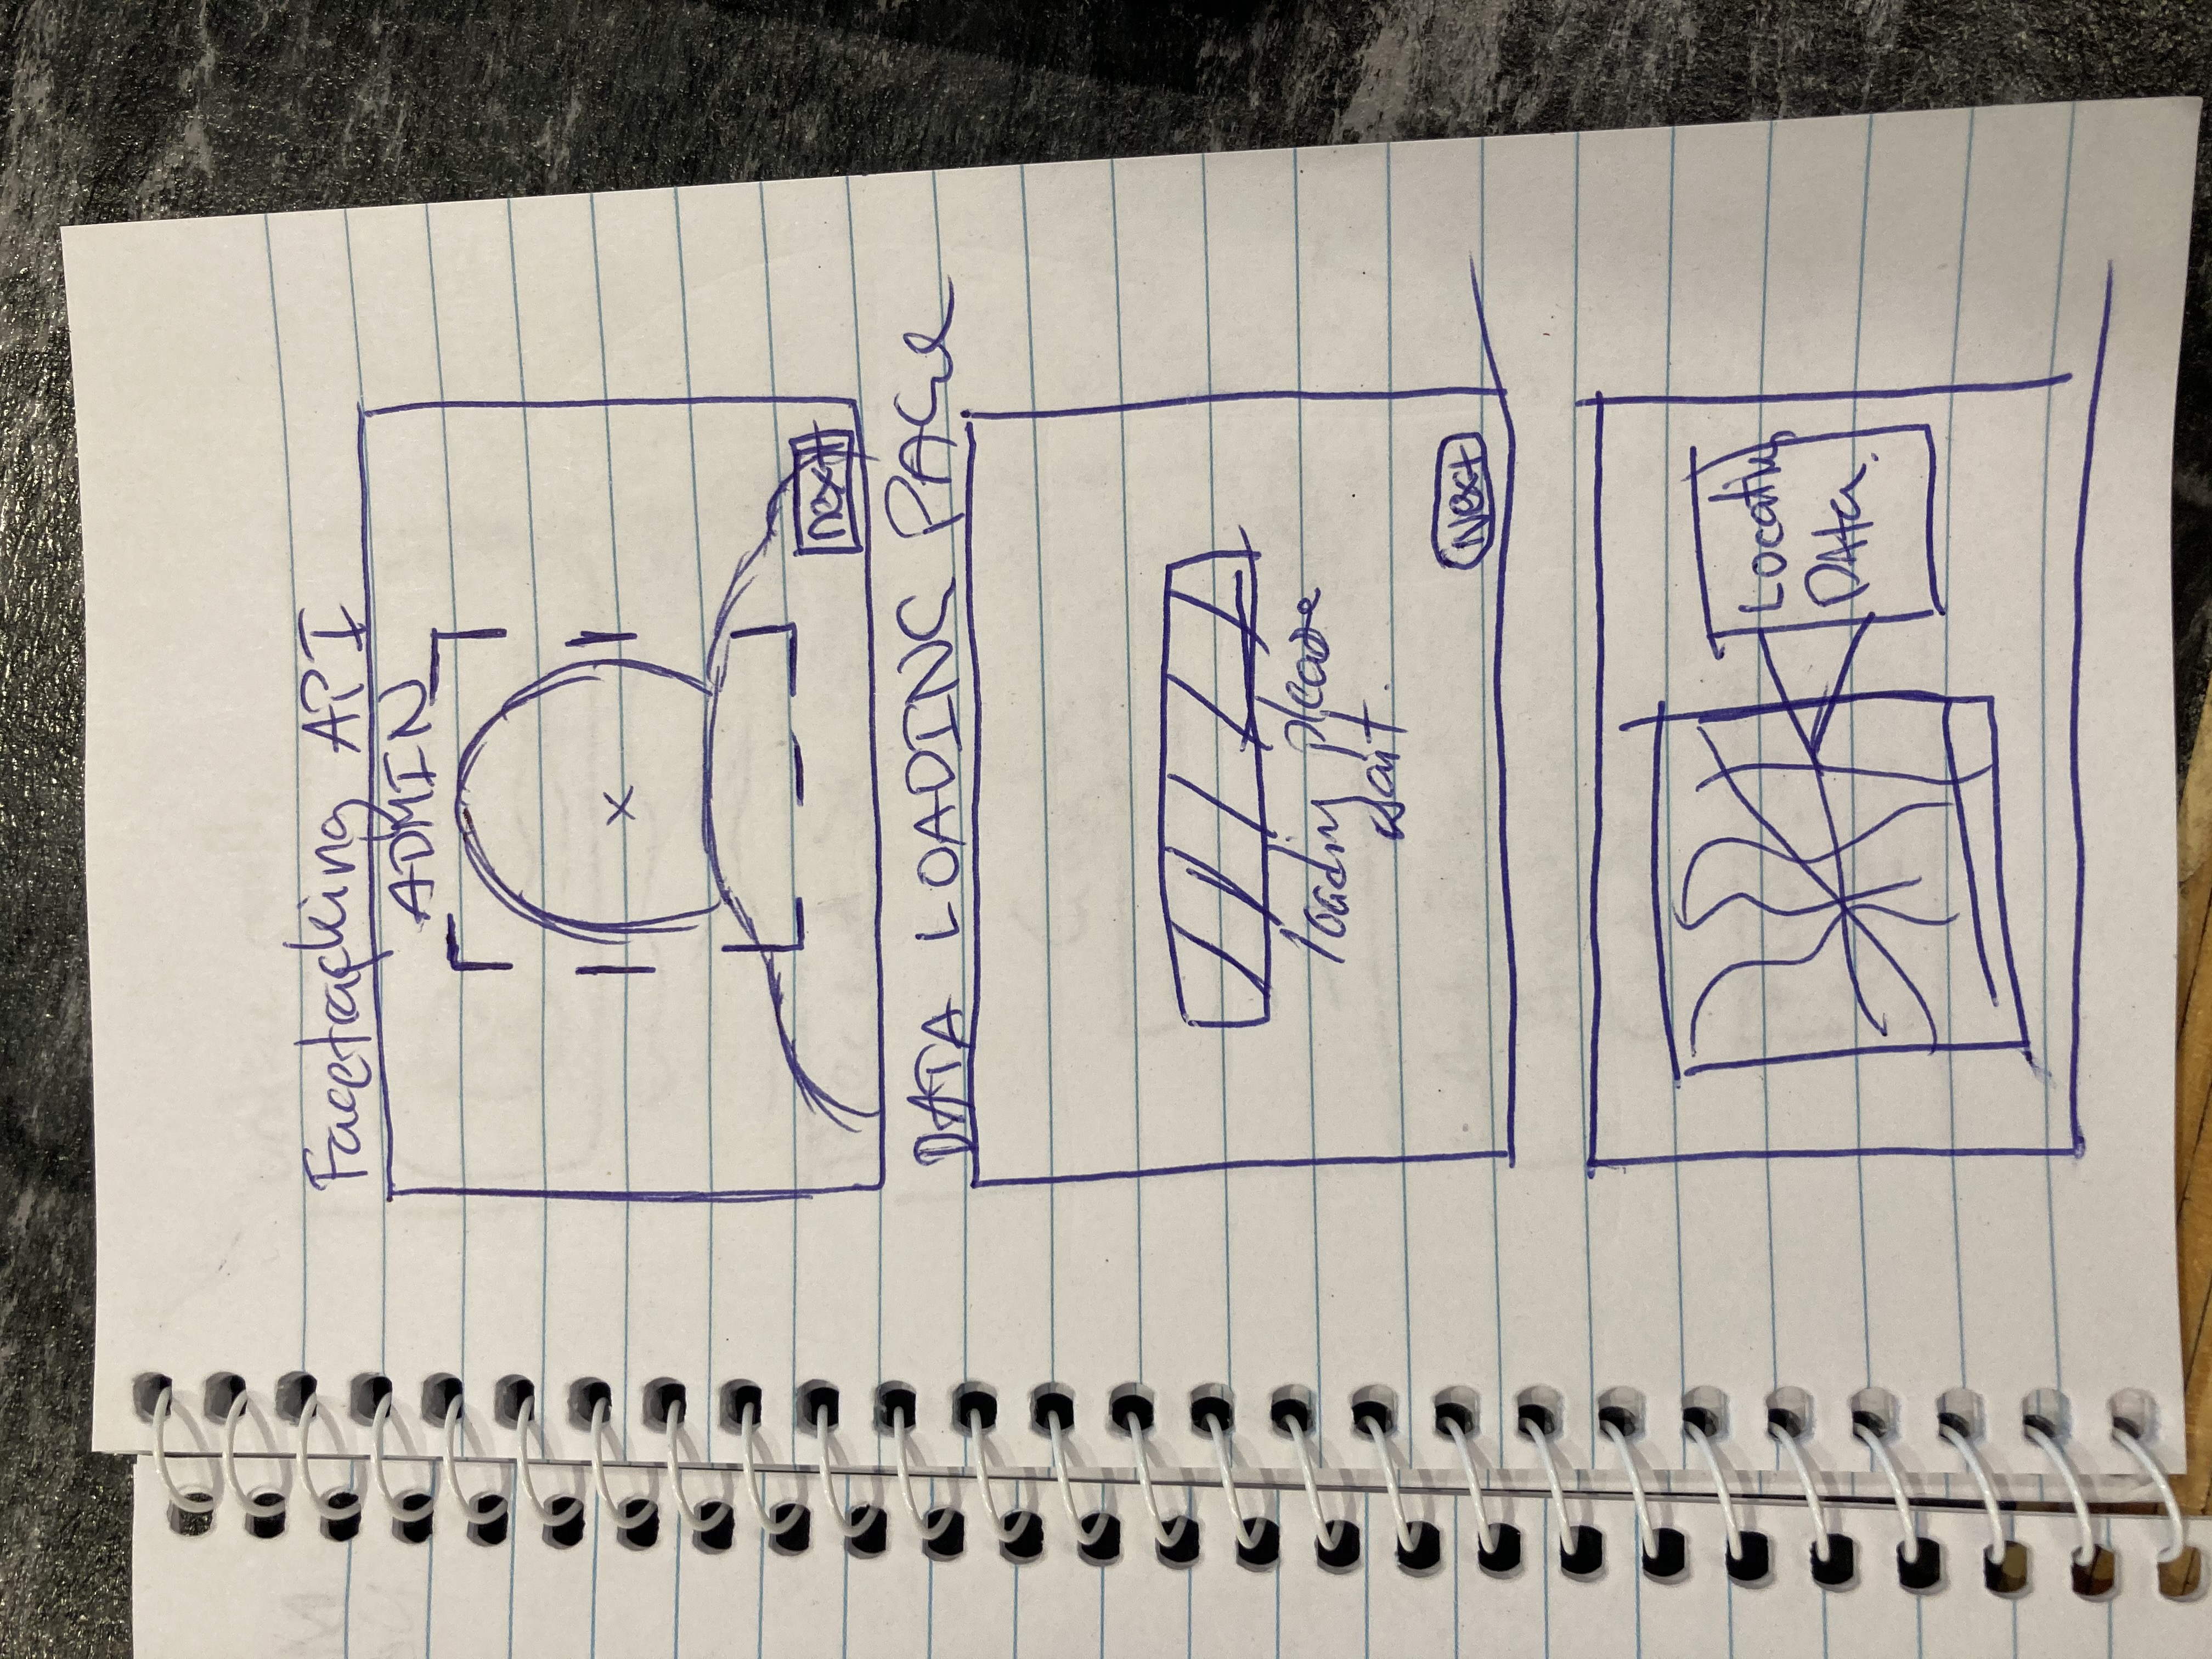 Facetracking API
ADMIN
next
DATA LOADING PAGE
loading please
wait.
Next
Location
DATA.